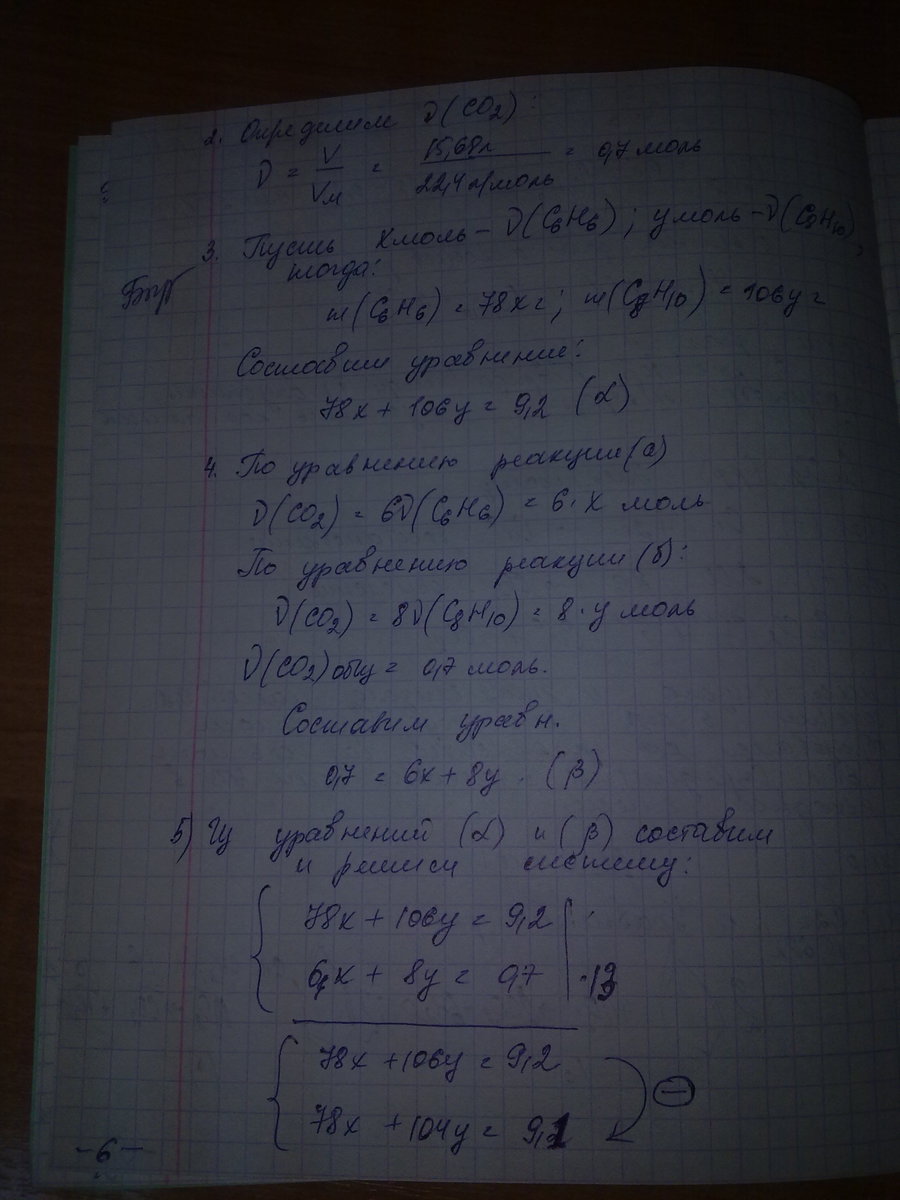 2. Определим ν(CO₂):
ν = V/Vм = 15,68л/22,4 л/моль = 0,7 моль
3. Пусть x моль – ν(C₆H₆); y моль – ν(C₈H₁₀),
тогда:
m(C₆H₆) = 78x г; m(C₈H₁₀) = 106y г
Составим уравнение:
78x + 106y = 9,2 (α)
4. По уравнению реакции (а)
ν(CO₂) = 6ν(C₆H₆) = 6·x моль
По уравнению реакции (б):
ν(CO₂) = 8ν(C₈H₁₀) = 8·y моль
ν(CO₂)общ = 0,7 моль.
Составим уравн.
0,7 = 6x + 8y. (β)
5) Из уравнений (α) и (β) составим
и решим систему:
78x + 106y = 9,2
6x + 8y = 0,7 | ·13
78x + 106y = 9,2
78x + 104y = 9,1
–
-6-